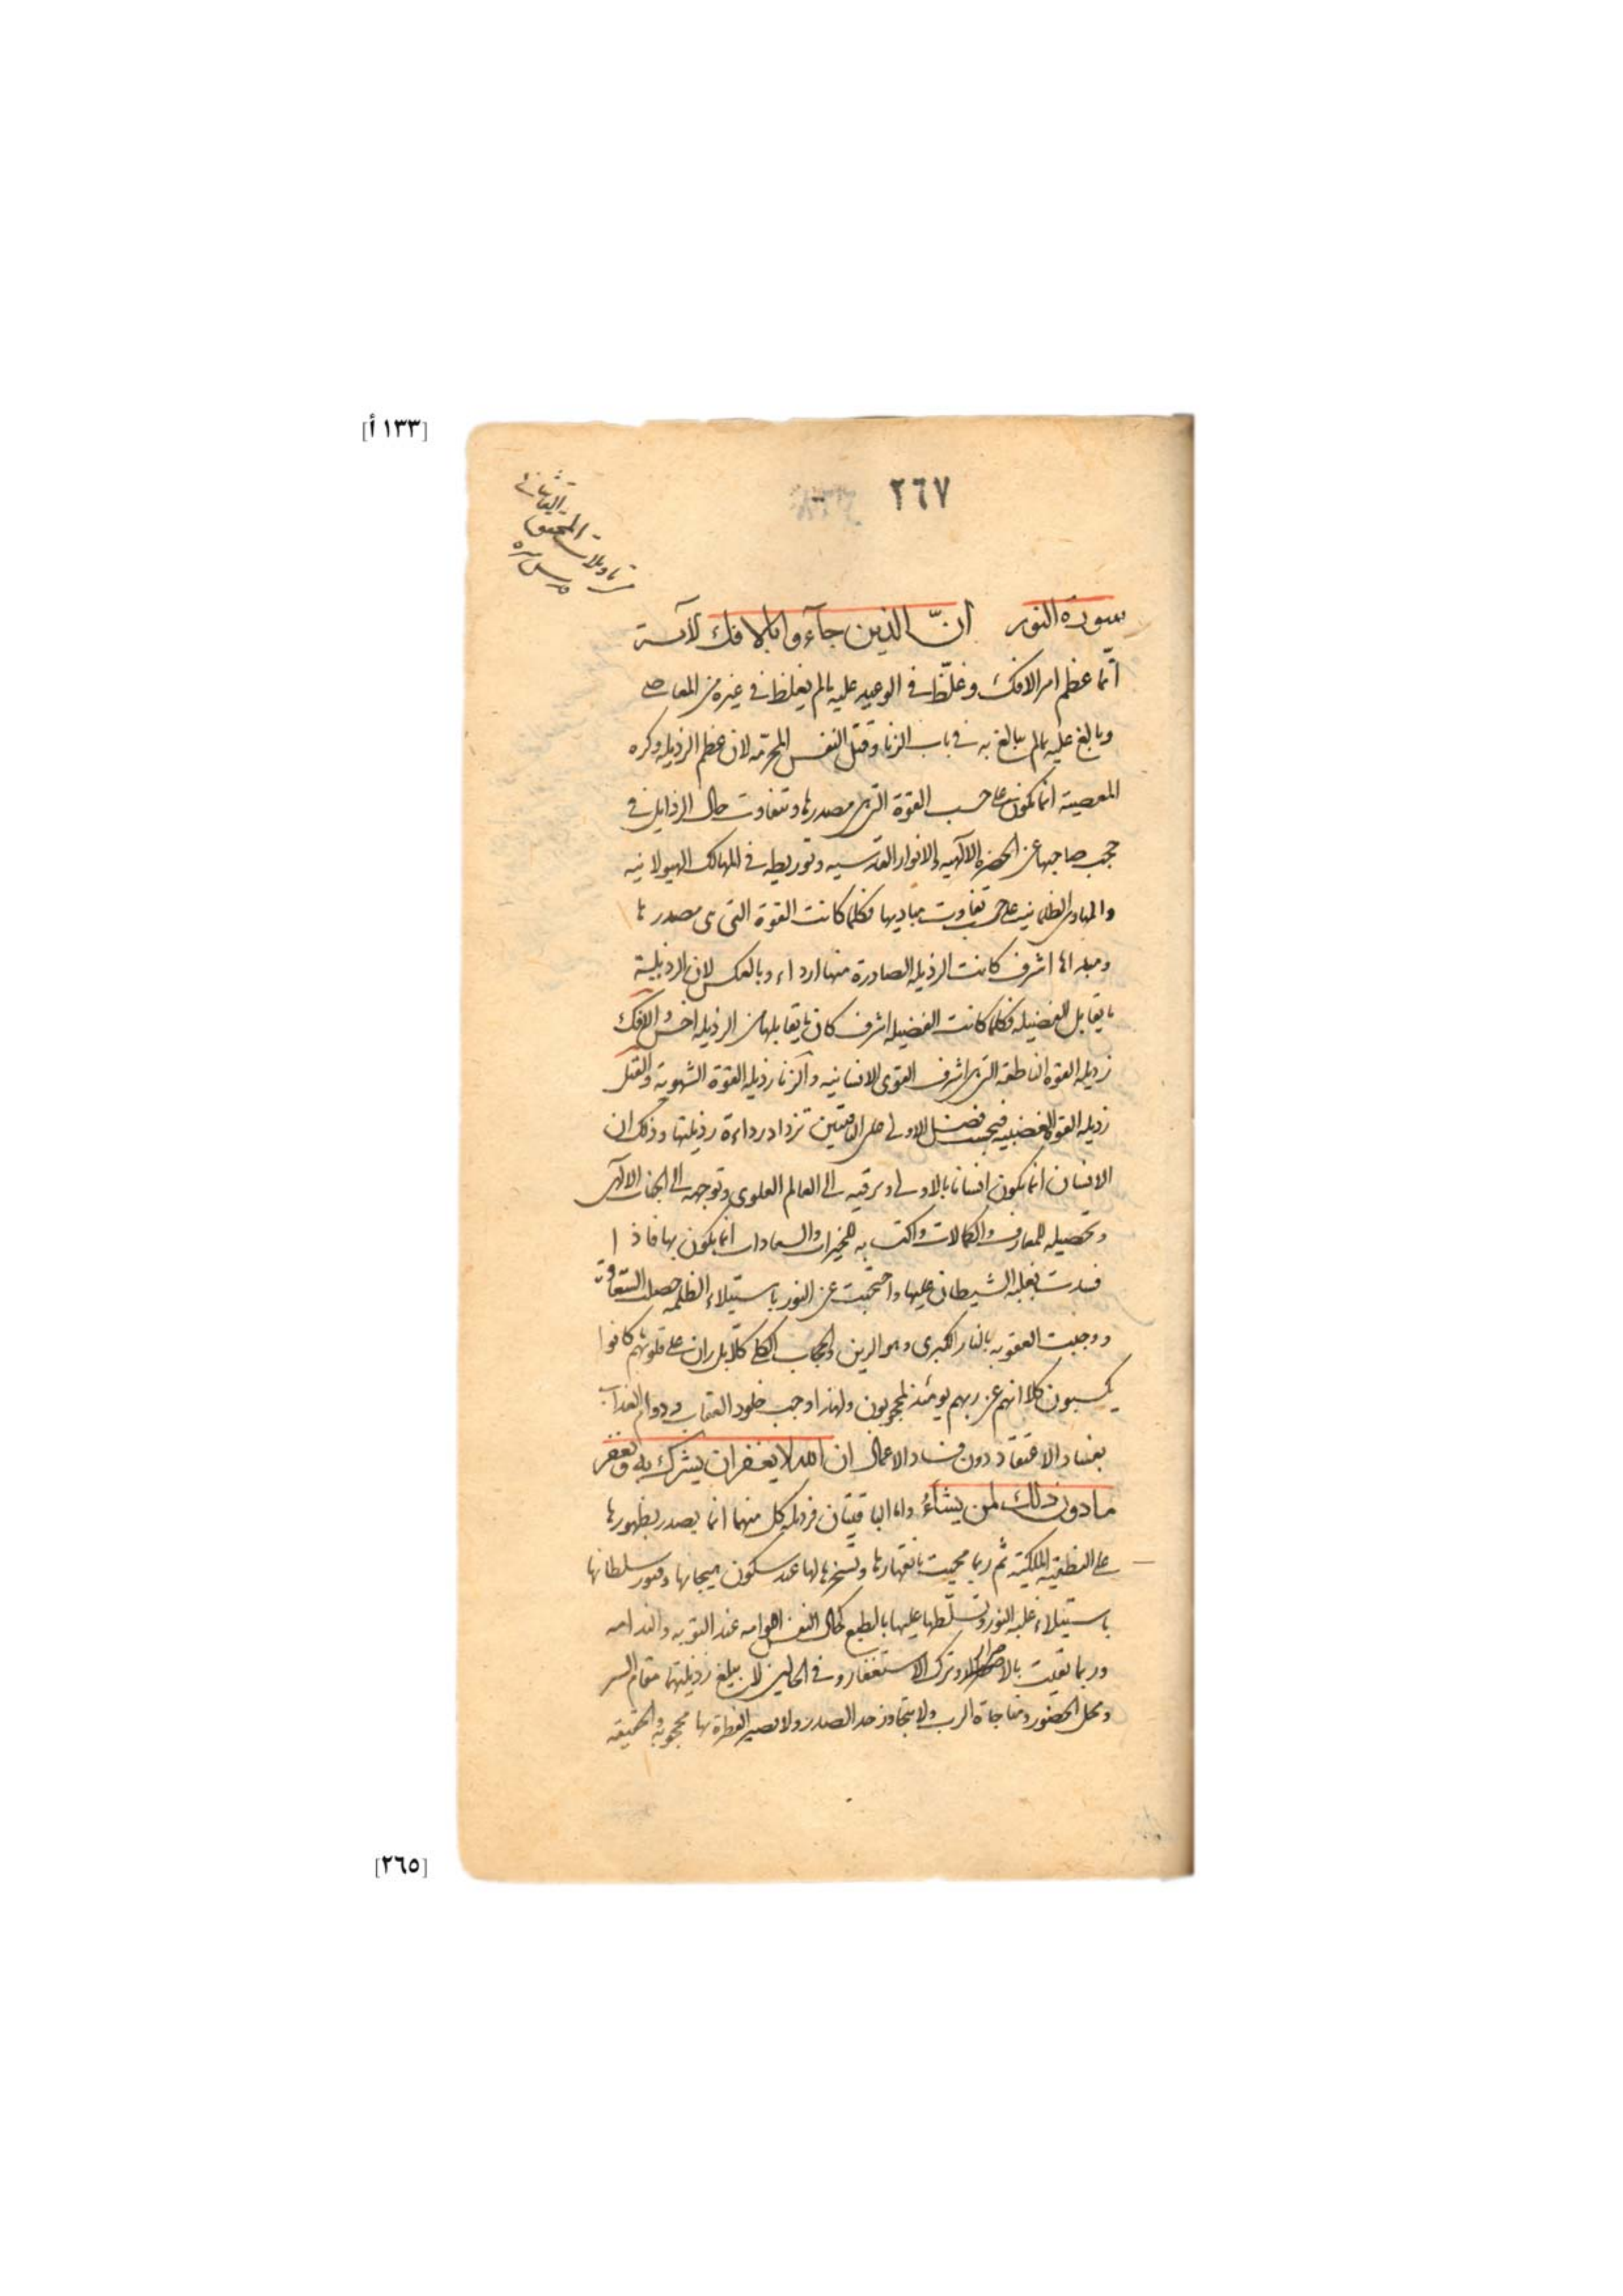 [١٣٣ أ]
٢٦٧
القاشاني
المحقق
تأويلات
قدس سره
سورة النور ان الذين جآءوا بالافك الآية
انّما عظم امر الافك وغلّظ في الوعيد عليه بما لم يغلظ في غيره من المعاصي
وبالغ عليه بما لم يبالغ به في باب الزنا وقتل النفس المحرمه لان عظم الرذيله وكره
المعصية انما يكون على حسب القوة التي هي مصدرها وتتفاوت حال الرذايل في
حجب صاحبها عن الحضره الالهيه والانوار القدسيه وتوريطه في المهالك الهيولانيه
والمهاوي الظلمانيه على حسب تفاوت مباديها فكلما كانت القوة التي هي مصدرها
ومبداها اشرف كانت الرذيله الصادرة منها ارداء وبالعكس لان الرذيلة
ما يقابل الفضيله فكلما كانت الفضيله اشرف كان ما يقابلها من الرذيله اخس والافك
رذيله القوه الناطقه التي هي اشرف القوى الانسانيه والزنا رذيله القوة الشهوية والقتل
رذيله القوه الغضبيه فبحسب فضل الاولى على الباقيتين تزداد رداءة رذيلتها وذلك ان
الانسان انما يكون انسانا بالاولى وترقيه الى العالم العلوي وتوجهه الى الجناب الالهي
وتحصيله للمعارف والكمالات واكتسابه للخيرات والسعادات انما يكون بها فاذا
فسدت بغلبه الشيطان عليها واحتجبت عن النور باستيلاء الظلمه حصلت الشقاوة
ووجبت العقوبه بالنار الكبرى وهو الرين والحجاب الكلي كلا بل ران على قلوبهم ما كانوا
يكسبون كلا انهم عن ربهم يومئذ لمحجوبون ولهذا اوجب خلود العقاب ودوام العذاب
بفساد الاعتقاد دون فساد الاعمال ان الله لا يغفر ان يشرك به ويغفر
ما دون ذلك لمن يشاءُ واما الباقيتان فرذيله كل منهما انما يصدر بظهورها
على النطقيه الملكية ثم ربما محيت بانقهارها وتسخرها لها عند سكون هيجانها وفتور سلطانها
باستيلاء غلبه النور وتسلطها عليها بالطبع كحال النفس اللوامه عند التوبه والندامه
وربما بقيت بالاصرار وترك الاستغفار وفي الحالين لا يبلغ رذيلتهما مقام السر
ومحل الحضور ومناجاة الرب ولا يتجاوز حد الصدر ولا يصير الفطرة بها محجوبه والحقيقه
[٢٦٥]